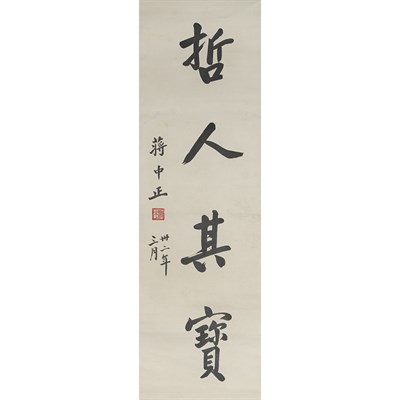 哲人其寶
蔣中正
卅六年
三月